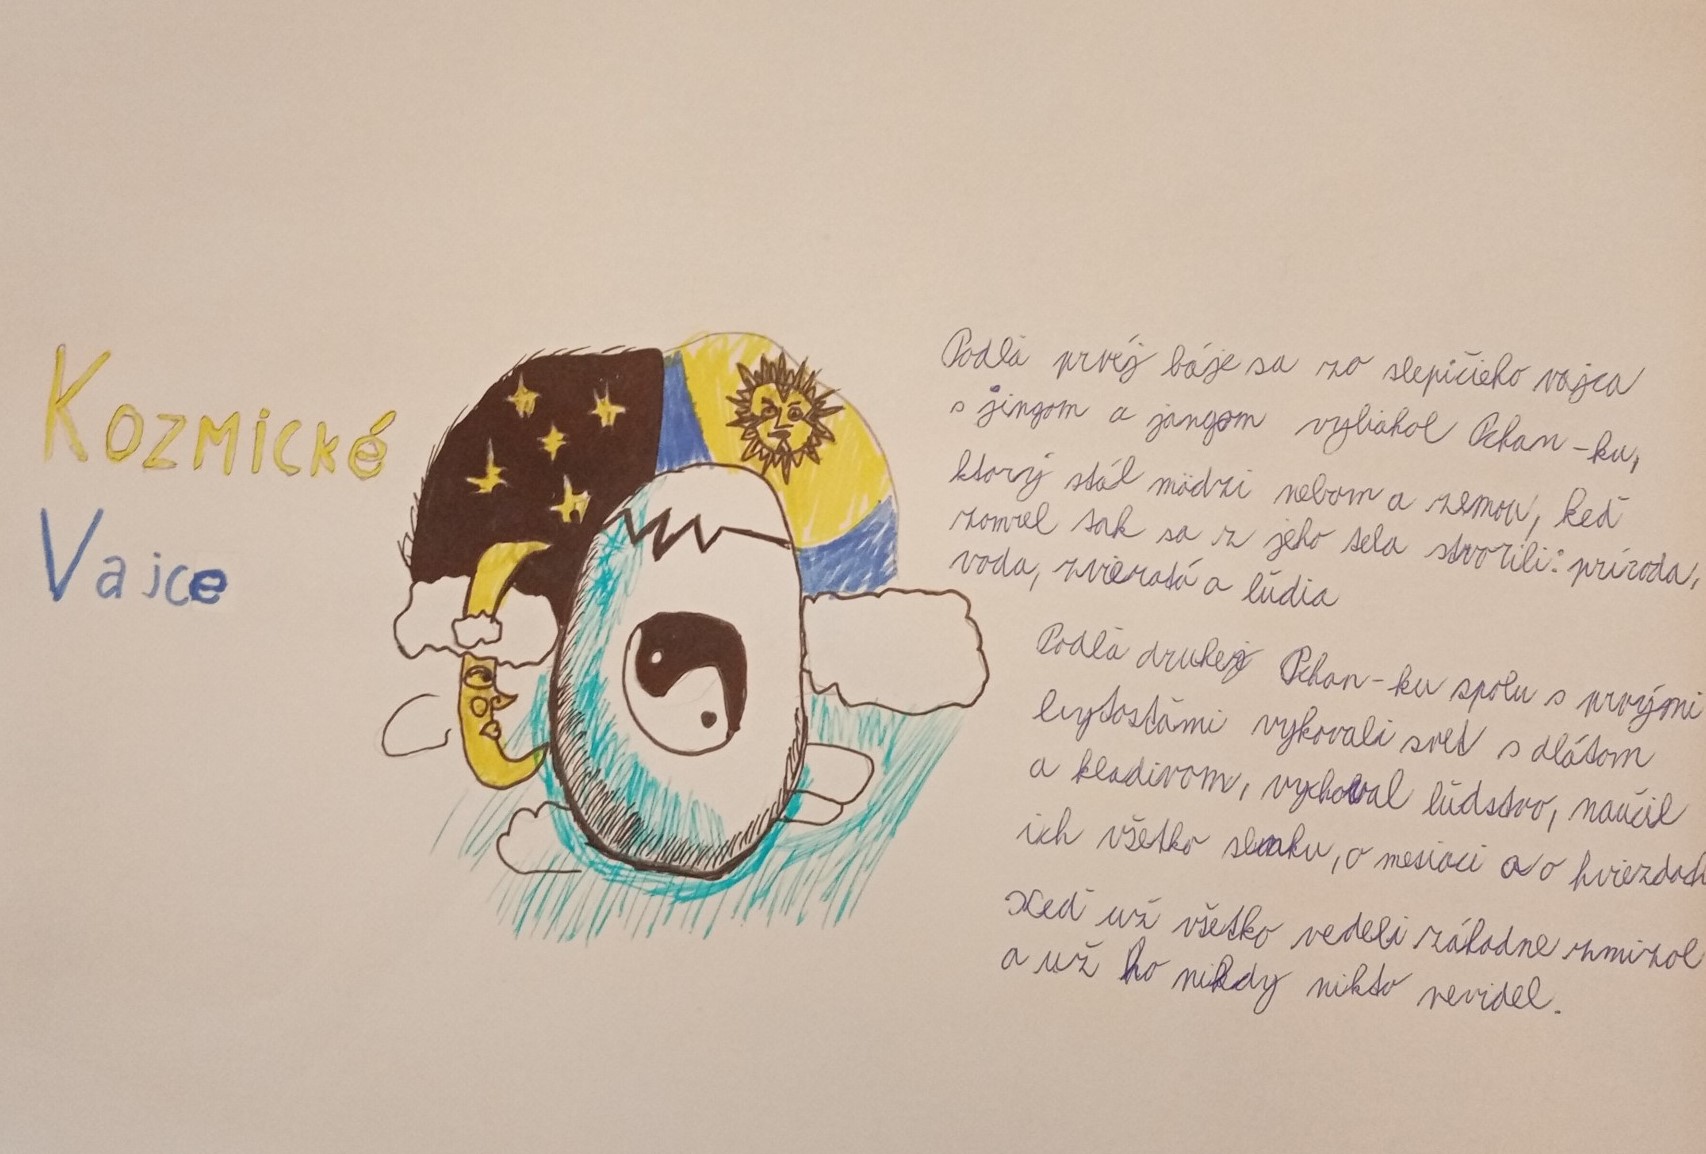 Kozmické
Vajce
Podlá prvéj báje sa zo slepičieho vajca
s jingom a jangom vyliahol Pchan-ku,
ktorý stál mädzi nebom a zemou, keď
zomrel tak sa z jeho tela stvorili: príroda,
voda, zvieratá a lúdia
Podlá druhej Pchan-ku spolu s prvými
bytostámi vykovali svet s dlátom
a kladivom, vychoval lúdstvo, naučil
ich všetko slnku, o mesiaci a o hviezdach
Keď už všetko vedeli záhadne zmizol
a už ho nikdy nikto nevidel.